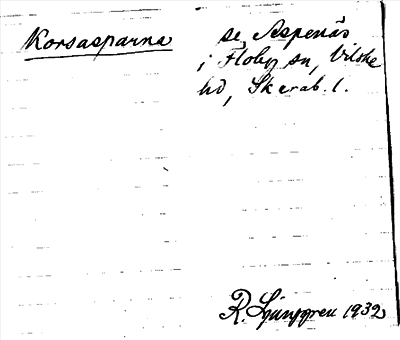 Korsasparna se Aspenäs
i Floby sn, Vilske
hd, Skarab. l.
R. Ljunggren 1932